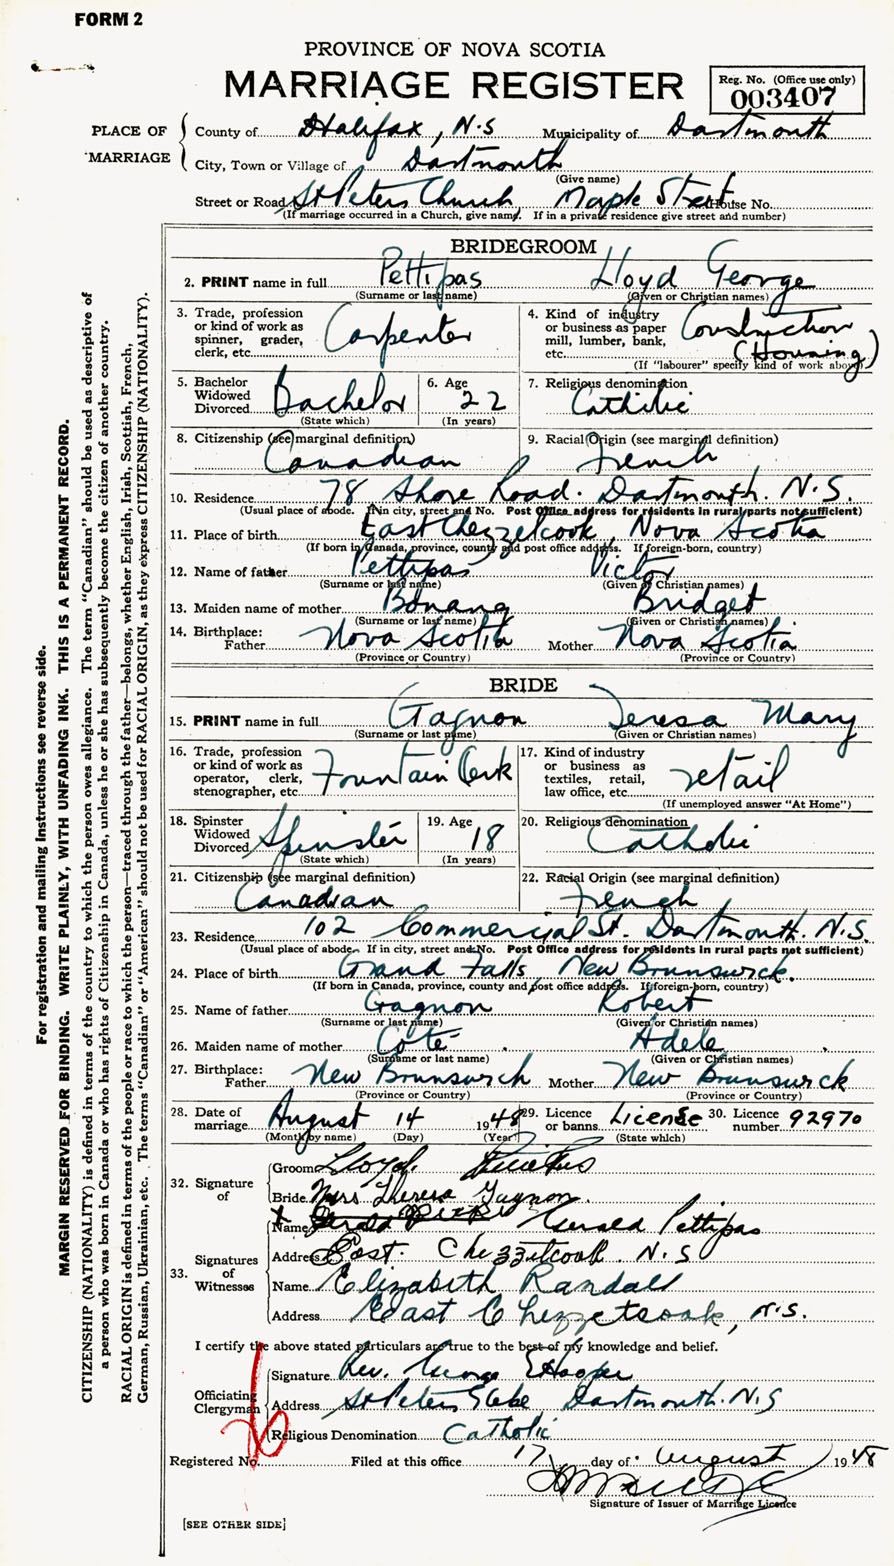 FORM 2
PROVINCE OF NOVA SCOTIA
MARRIAGE REGISTER
Reg. No. (Office use only)
003407
PLACE OF MARRIAGE
County of Halifax, N.S Municipality of Dartmouth
City, Town or Village of Dartmouth
(Give name)
Street or Road St Peters Church Maple Street House No.
(If marriage occurred in a Church, give name. If in a private residence give street and number)
BRIDEGROOM
2. PRINT name in full Pettipas Lloyd George
(Surname or last name) (Given or Christian names)
3. Trade, profession or kind of work as spinner, grader, clerk, etc. Carpenter
4. Kind of industry or business as paper mill, lumber, bank, etc. Construction (Housing)
(If "labourer" specify kind of work above)
5. Bachelor Widowed Divorced Bachelor
(State which)
6. Age 22
(In years)
7. Religious denomination
Catholic
8. Citizenship (see marginal definition)
Canadian
9. Racial Origin (see marginal definition)
French
10. Residence 78 Shore Road. Dartmouth. N.S.
(Usual place of abode. If in city, street and No. Post Office address for residents in rural parts not sufficient)
11. Place of birth East Chezzetcook, Nova Scotia
(If born in Canada, province, county and post office address. If foreign-born, country)
12. Name of father Pettipas Victor
(Surname or last name) (Given or Christian names)
13. Maiden name of mother Bonang Bridget
(Surname or last name) (Given or Christian names)
14. Birthplace: Father Nova Scotia Mother Nova Scotia
(Province or Country) (Province or Country)
BRIDE
15. PRINT name in full Gagnon Teresa Mary
(Surname or last name) (Given or Christian names)
16. Trade, profession or kind of work as operator, clerk, stenographer, etc. Fountain Clerk
17. Kind of industry or business as textiles, retail, law office, etc. retail
(If unemployed answer "At Home")
18. Spinster Widowed Divorced Spinster
(State which)
19. Age 18
(In years)
20. Religious denomination
Catholic
21. Citizenship (see marginal definition)
Canadian
22. Racial Origin (see marginal definition)
French
23. Residence 102 Commercial St. Dartmouth. N.S.
(Usual place of abode. If in city, street and No. Post Office address for residents in rural parts not sufficient)
24. Place of birth Grand Falls, New Brunswick.
(If born in Canada, province, county and post office address. If foreign-born, country)
25. Name of father Gagnon Robert
(Surname or last name) (Given or Christian names)
26. Maiden name of mother Coté Adele
(Surname or last name) (Given or Christian names)
27. Birthplace: Father New Brunswick Mother New Brunswick
(Province or Country) (Province or Country)
28. Date of marriage August 14 1948
(Month by name) (Day) (Year)
29. Licence or banns License
(State which)
30. Licence number 92970
32. Signature of
Groom Lloyd
Bride Miss Theresa Gagnon.
33. Signatures of Witnesses
X Name Gerald Pettipas
Address East. Chezzetcook N.S
Name Elizabeth Randall
Address East Chezzetcook, N.S.
I certify the above stated particulars are true to the best of my knowledge and belief.
Officiating Clergyman
Signature Rev. George Hooper
Address St Peters Glebe Dartmouth. N.S
Religious Denomination Catholic
Registered No. Filed at this office 17 day of August 1948
Signature of Issuer of Marriage Licence
[SEE OTHER SIDE]
For registration and mailing instructions see reverse side.
MARGIN RESERVED FOR BINDING. WRITE PLAINLY, WITH UNFADING INK. THIS IS A PERMANENT RECORD.
CITIZENSHIP (NATIONALITY) is defined in terms of the country to which the person owes allegiance. The term "Canadian" should be used as descriptive of
a person who was born in Canada or who has rights of Citizenship in Canada, unless he or she has subsequently become the citizen of another country.
RACIAL ORIGIN is defined in terms of the people or race to which the person—traced through the father—belongs, whether English, Irish, Scottish, French,
German, Russian, Ukrainian, etc. The terms "Canadian" or "American" should not be used for RACIAL ORIGIN, as they express CITIZENSHIP (NATIONALITY).